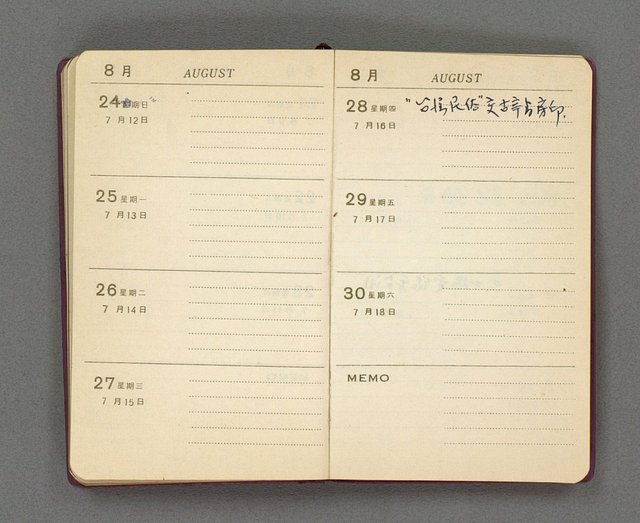 8月 AUGUST
24 星期日
7月12日
25 星期一
7月13日
26 星期二
7月14日
27 星期三
7月15日
8月 AUGUST
28 星期四
"台灣民俗"交古亭書房印.
7月16日
29 星期五
7月17日
30 星期六
7月18日
MEMO